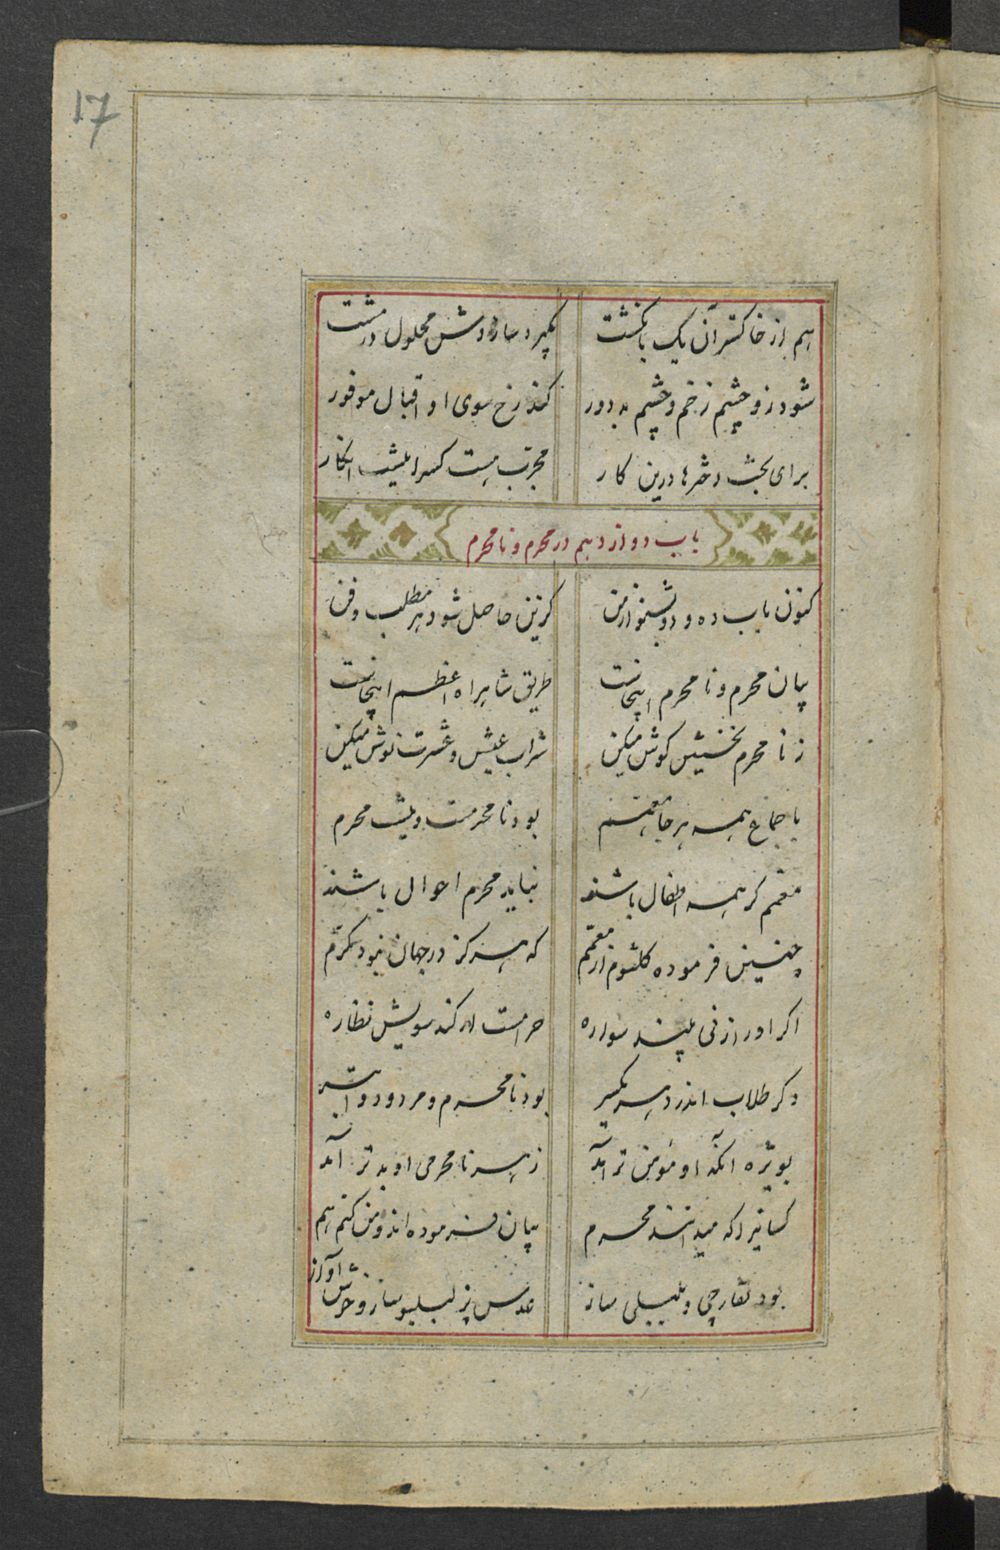 17
هم از خاکستر آن یک با نگشت بگیرد سازدش محلول در مشت
شود زو چشم زخم و چشم بد دور کند رخ سوی او اقبال موفور
برای بخت دخترها درین کار مجرب هست کسرا نیست انکار
باب دوازدهم در محرم و نامحرم
کنون باب ده و دو بشنو از من کزین حاصل شود هر مطلب و فن
بیان محرم و نا محرم اینجاست طریق شاهراه اعظم اینجاست
ز نا محرم نخستین گوش میکن شراب عیش و عشرت نوش میکن
باجماع همه هر جا معمم بود نا محرمست و نیست محرم
معمم گر همه اطفال باشند نباید محرم احوال باشند
چنین فرموده کلثوم از معمم که هرگز در جهان نبود مکرم
اگر او را زنی بیند سواره حرامست ار کند سویش نظاره
دگر طلاب اندر دهر یکسر بود نا محرم و مردود و ابتر
بویژه آنکه او مؤمن تر آمد ز هر نا محرمی او بدتر آمد
کسانیرا که میدانند محرم بیان فرموده اند و من کنم هم
بود نقارچی و بلبلی ساز عدس پز لبلبو ساز و خوش آواز